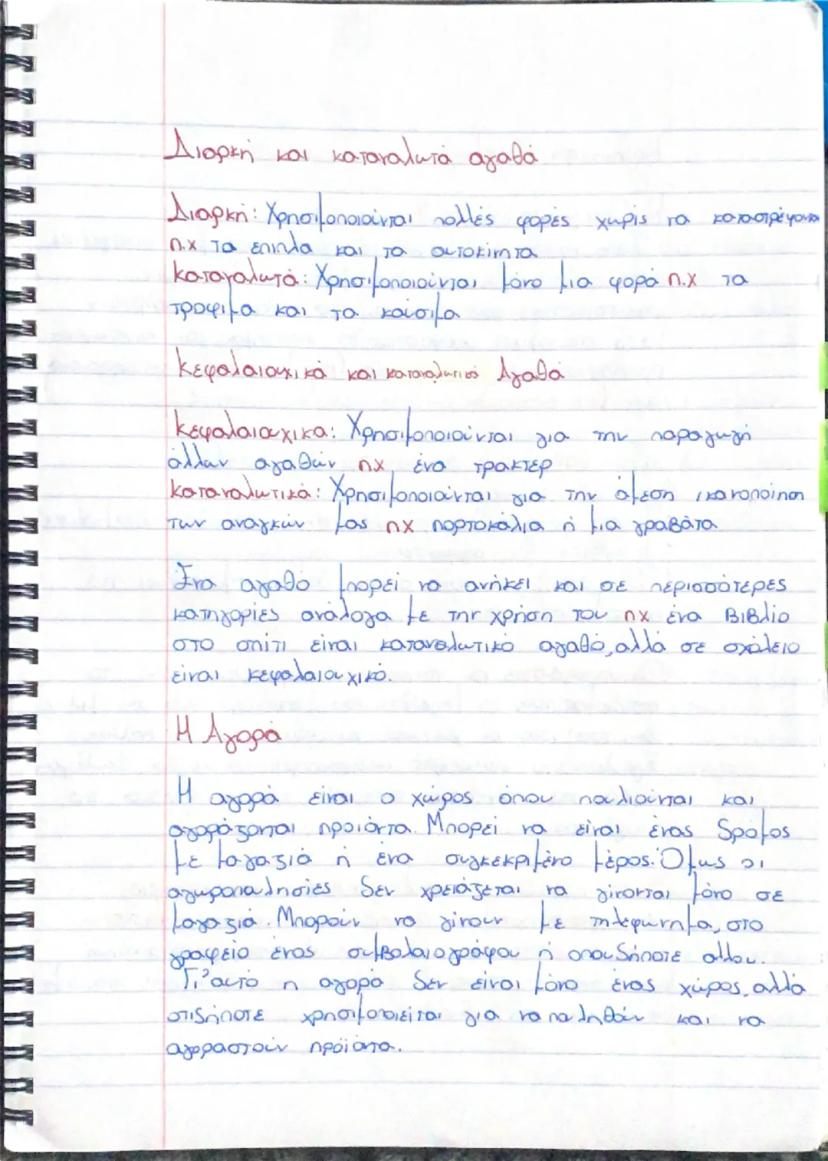 Διαρκή και καταναλωτά αγαθά
Διαρκή: Χρησιμοποιούνται πολλές φορές χωρίς να καταστρέφοντα
π.χ τα επιπλα και τα αυτοκίνητα
Καταναλωτά: Χρησιμοποιούνται μόνο μια φορά π.χ τα
τροφιμα και τα καύσιμα
Κεφαλαιουχικά και καταναλωτικά Αγαθά
Κεφαλαιουχικα: Χρησιμοποιούνται για την παραγωγή
άλλων αγαθών πχ ένα τρακτερ
Καταναλωτικά: Χρησιμοποιούνται για την άμεση ικανοποίηση
των αναγκών μας πχ πορτοκάλια ή μια γραβάτα
Ένα αγαθο μπορεί να ανήκει και σε περισσότερες
κατηγορίες ανάλογα με την χρήση του πχ ένα βιβλιο
στο σπίτι είναι καταναλωτικό αγαθό, αλλά σε σχόλειο
είναι κεφαλαιουχικό.
Η Αγορά
Η αγορά είναι ο χώρος όπου πουλιούνται και
αγοράζονται προιόντα. Μπορεί να είναι ένας δρομος
με μαγαζιά ή ένα συγκεκριμένο μέρος. Όμως οι
αγωροπωλησίες δεν χρειάζεται να γίνονται μόνο σε
μαγαζιά. Μπορούν να γίνουν με τηλεφώνημα, στο
γραφείο ένος συμβολαιογράφου ή οπουδήποτε αλλου.
Γι'αυτό η αγορά δεν είναι μόνο ένας χώρος, αλλά
οτιδήποτε χρησιμοποιείται για να πωληθούν και να
αγοραστούν πρόϊοντα.